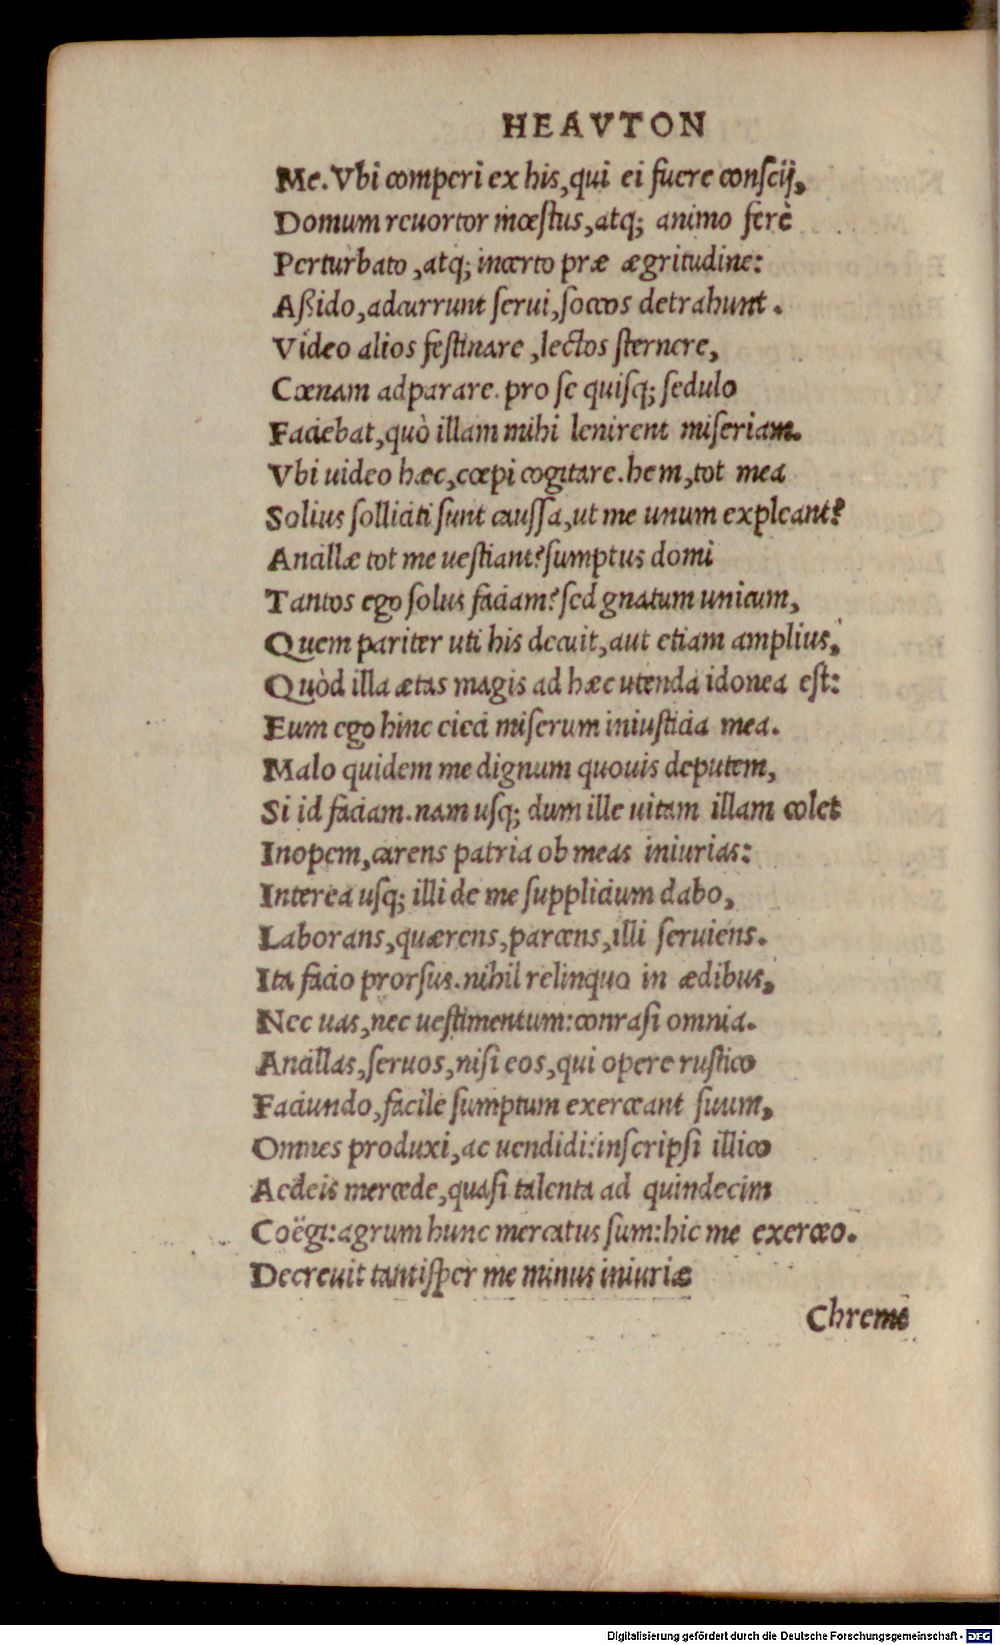 HEAVTON
Me. Vbi comperi ex his, qui ei fuere conſcij,
Domum reuortor mœſtus, atq; animo ferè
Perturbato, atq; incerto præ ægritudine:
Aßido, adcurrunt ſerui, ſoccos detrahunt.
Video alios feſtinare, lectos ſternere,
Cœnam adparare. pro ſe quiſq; ſedulo
Faciebat, quò illam mihi lenirent miſeriam.
Vbi uideo hæc, cœpi cogitare. hem, tot mea
Solius ſolliciti ſunt cauſſa, ut me unum expleant?
Ancillæ tot me ueſtiant? ſumptus domi
Tantos ego ſolus faciam? ſed gnatum unicum,
Quem pariter uti his decuit, aut etiam amplius,
Quòd illa ætas magis ad hæc utenda idonea eſt:
Eum ego hinc eieci miſerum iniuſticia mea.
Malo quidem me dignum quouis deputem,
Si id faciam. nam uſq; dum ille uitam illam colet
Inopem, carens patria ob meas iniurias:
Interea uſq; illi de me ſupplicium dabo,
Laborans, quærens, parcens, illi ſeruiens.
Ita facio prorſus. nihil relinquo in ædibus,
Nec uas, nec ueſtimentum: conraſi omnia.
Ancillas, ſeruos, niſi eos, qui opere ruſtico
Faciundo, facile ſumptum exerceant ſuum,
Omnes produxi, ac uendidi: inſcripſi illico
Aedeis mercede, quaſi talenta ad quindecim
Coëgi: agrum hunc mercatus ſum: hic me exerceo.
Decreuit tantiſper me minus iniuriæ
Chreme
Digitalisierung gefördert durch die Deutsche Forschungsgemeinschaft - DFG